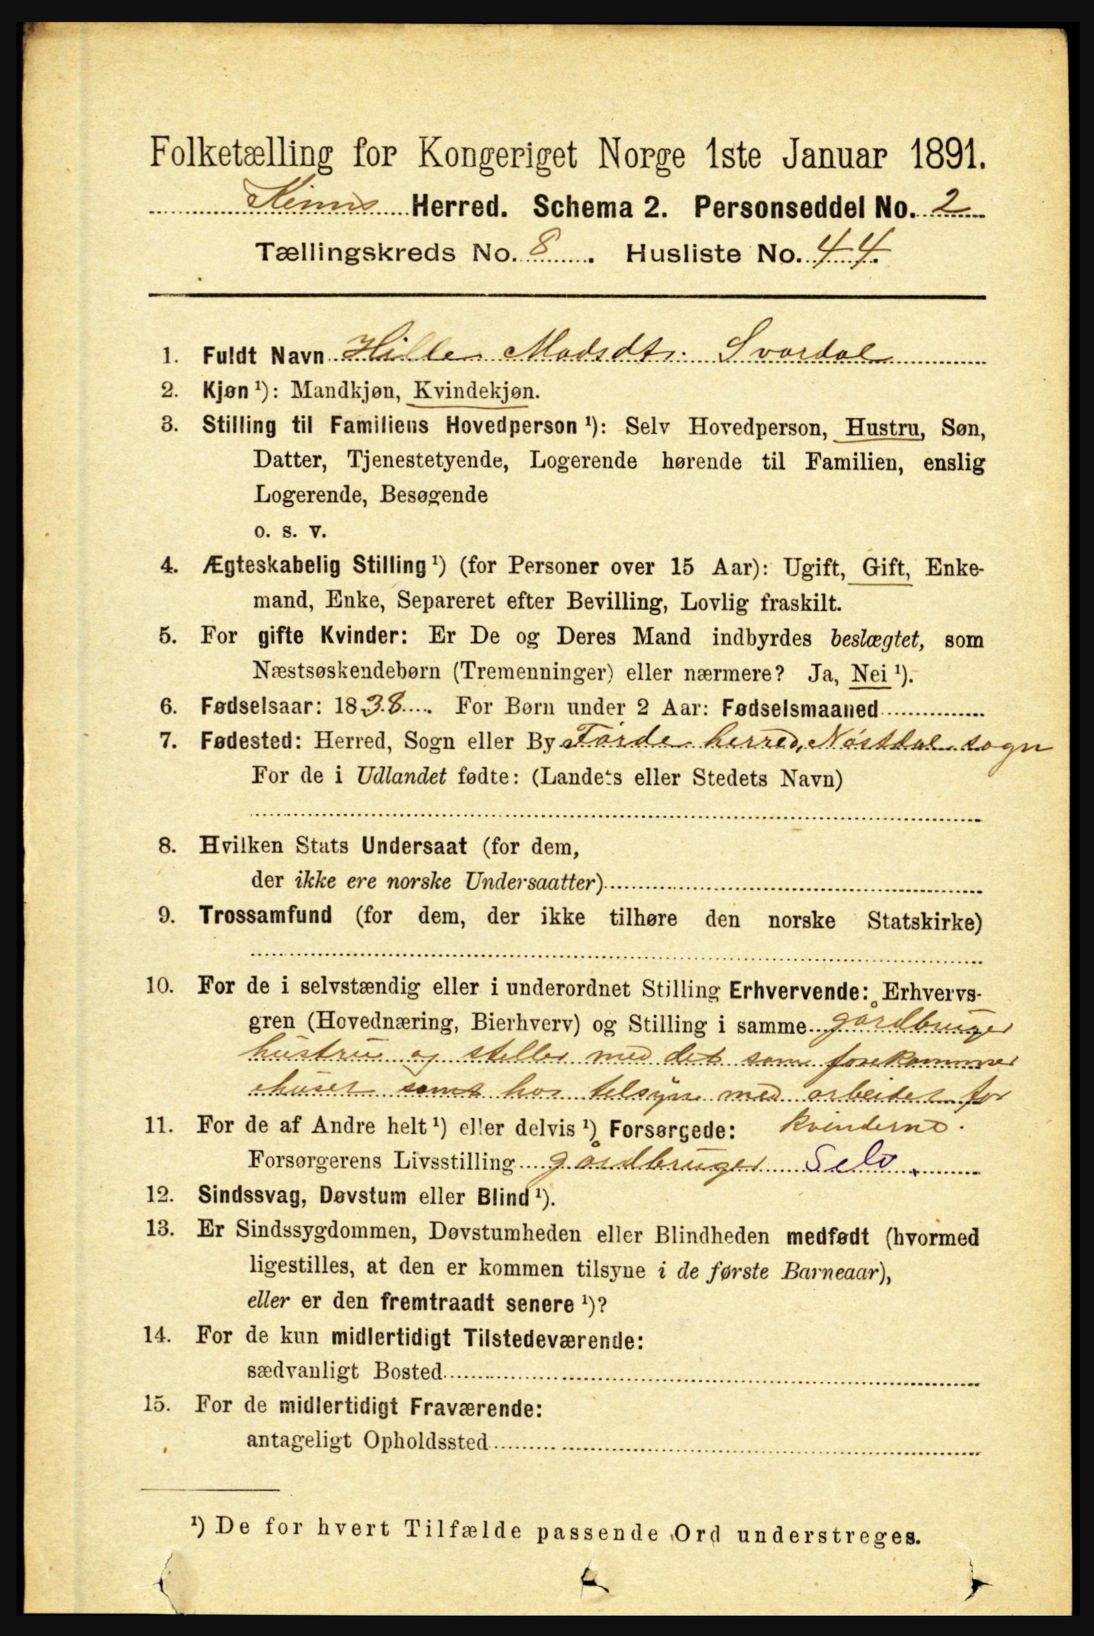 Folketælling for Kongeriget Norge 1ste Januar 1891.
Kinns Herred. Schema 2. Personseddel No. 2
Tællingskreds No. 8. Husliste No. 44.
1. Fuldt Navn Hille Madsdtr. Svardal
2. Kjøn ¹): Mandkjøn, Kvindekjøn.
3. Stilling til Familiens Hovedperson ¹): Selv Hovedperson, Hustru, Søn,
Datter, Tjenestetyende, Logerende hørende til Familien, enslig
Logerende, Besøgende
o. s. v.
4. Ægteskabelig Stilling ¹) (for Personer over 15 Aar): Ugift, Gift, Enke-
mand, Enke, Separeret efter Bevilling, Lovlig fraskilt.
5. For gifte Kvinder: Er De og Deres Mand indbyrdes beslægtet, som
Næstsøskendebørn (Tremenninger) eller nærmere? Ja, Nei ¹).
6. Fødselsaar: 1838. For Børn under 2 Aar: Fødselsmaaned
7. Fødested: Herred, Sogn eller By Førde herred, Nøstdal sogn
For de i Udlandet fødte: (Landets eller Stedets Navn)
8. Hvilken Stats Undersaat (for dem,
der ikke ere norske Undersaatter)
9. Trossamfund (for dem, der ikke tilhøre den norske Statskirke)
10. For de i selvstændig eller i underordnet Stilling Erhvervende: Erhvervs-
gren (Hovednæring, Bierhverv) og Stilling i samme gårdbruger
hustru og steller med det som forekommer
ihuset samt har tilsyn med arbeidet for
11. For de af Andre helt ¹) eller delvis ¹) Forsørgede: kvinderne.
Forsørgerens Livsstilling gårdbruger Selv.
12. Sindssvag, Døvstum eller Blind ¹).
13. Er Sindssygdommen, Døvstumheden eller Blindheden medfødt (hvormed
ligestilles, at den er kommen tilsyne i de første Barneaar),
eller er den fremtraadt senere ¹)?
14. For de kun midlertidigt Tilstedeværende:
sædvanligt Bosted
15. For de midlertidigt Fraværende:
antageligt Opholdssted
¹) De for hvert Tilfælde passende Ord understreges.